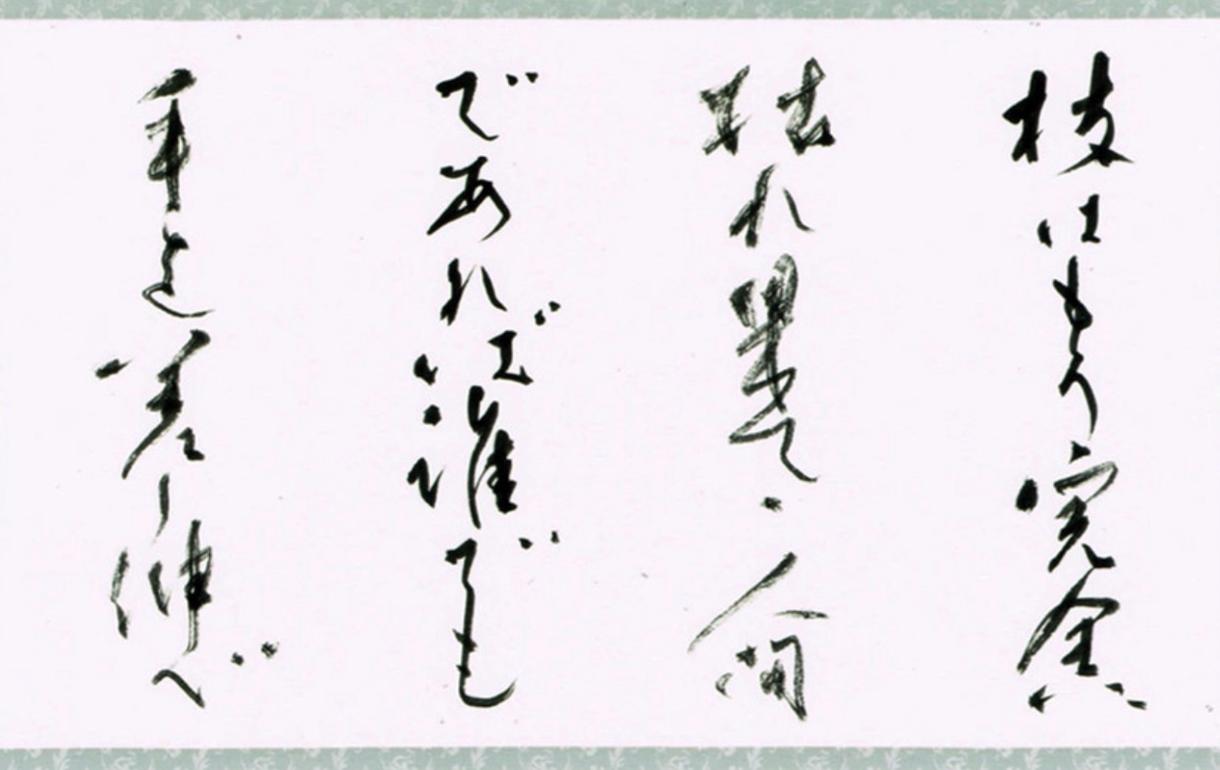 枝はもう完全に
枯れ果て、人間
であれば誰でも
手を差し伸べ